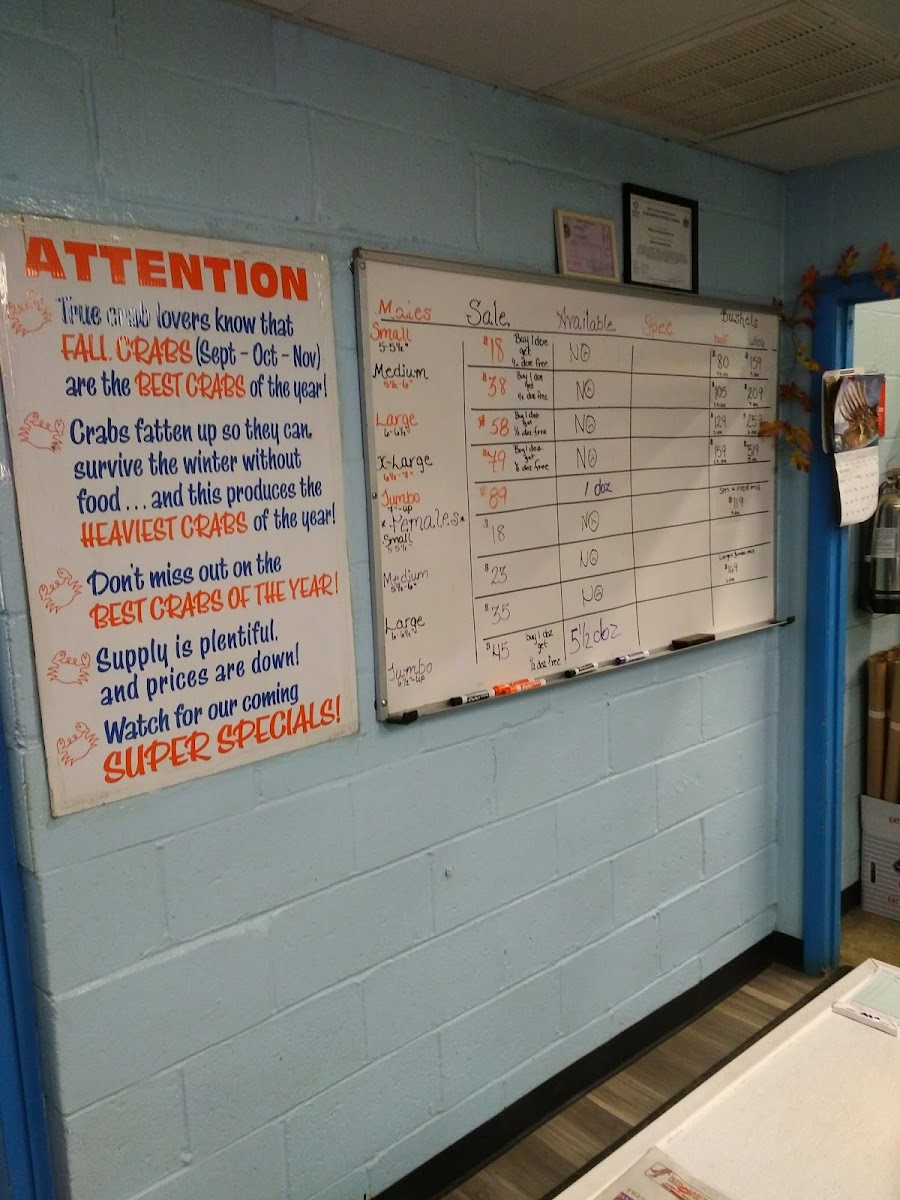 ATTENTION
True crab lovers know that
FALL CRABS (Sept - Oct - Nov)
are the BEST CRABS of the year!
Crabs fatten up so they can
survive the winter without
food... and this produces the
HEAVIEST CRABS of the year!
Don't miss out on the
BEST CRABS OF THE YEAR!
Supply is plentiful,
and prices are down!
Watch for our coming
SUPER SPECIALS!
Males Sale Available Spec Bushels
half whole
Small $18 Buy 1 doz get 1/2 doz free NO $80 $159
5-5½"
Medium $38 Buy 1 doz get 1/2 doz free NO $105 $209
5½-6"
Large $58 Buy 1 doz get 1/2 doz free NO $129 $259
6-6½"
X-Large $79 Buy 1 doz get 1/2 doz free NO $159 $319
6½-7"
Jumbo $89 1 doz
7"-up
$119
*Females*
Small $18 NO
5-5½"
Medium $23 NO
5½-6"
$169
Large $35 NO
6-6½"
Jumbo $45 buy 1 doz get ½ doz free 5½ doz
6½"-up